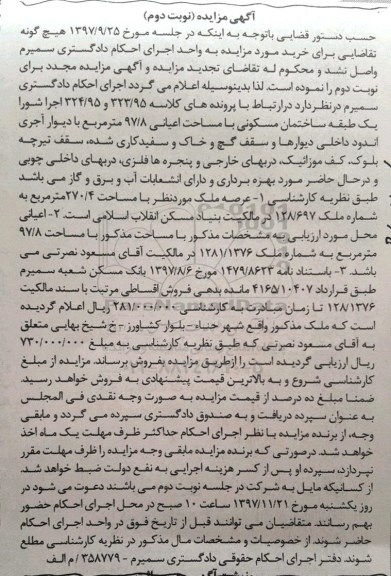 آگهی مزایده (نوبت دوم)
حسب دستور قضایی باتوجه به اینکه در جلسه مورخ ۱۳۹۷/۹/۲۵ هیچ گونه
تقاضایی برای خرید مورد مزایده به واحد اجرای احکام دادگستری سمیرم
واصل نشد و محکوم له تقاضای تجدید مزایده و آگهی مزایده مجدد برای
نوبت دوم را نموده است. لذا بدینوسیله اعلام می گردد اجرای احکام دادگستری
سمیرم درنظردارد درارتباط با پرونده های کلاسه ۳۲۳/۹۵ و ۳۲۴/۹۵ اجرا شورا
یک طبقه ساختمان مسکونی با مساحت اعیانی ۹۷/۸ مترمربع با دیوار آجری
اندود داخلی دیوارها و سقف گچ و خاک و سفیدکاری شده، سقف تیرچه
بلوک، کف موزائیک، دربهای خارجی و پنجره ها فلزی، دربهای داخلی چوبی
و درحال حاضر مورد بهره برداری و دارای انشعابات آب و برق و گاز می باشد
طبق نظریه کارشناسی ۱- عرصه ملک موردنظر با مساحت ۲۷۰/۴مترمربع به
شماره ملک ۱۲۸/۶۹۷ در مالکیت بنیاد مسکن انقلاب اسلامی است. ۲- اعیانی
محل مورد ارزیابی به مشخصات مذکور با مساحت مذکور با مساحت ۹۷/۸
مترمربع به شماره ملک ۱۲۸۱/۱۳۷۶ در مالکیت آقای مسعود نصرتی می
باشد. ۳- باستناد نامه ۱۴۷۹/۸۶۲۳ مورخ ۱۳۹۷/۸/۶ بانک مسکن شعبه سمیرم
طبق قرارداد ۴۱۶۵/۱۰۴۰۷ مانده بدهی فروش اقساطی مرتبت با سند مالکیت
۱۲۸/۱۳۷۶ تا زمان مبادرت به کارشناسی ۲۸۱/۰۰۰/۰۰۰ ریال اعلام گردیده
است که ملک مذکور واقع شهر حناء- بلوار کشاورز- خ شیخ بهایی متعلق
به آقای مسعود نصرتی که طبق نظریه کارشناسی به مبلغ ۷۳۰/۰۰۰/۰۰۰
ریال ارزیابی گردیده است را ازطریق مزایده بفروش برساند. مزایده از مبلغ
کارشناسی شروع و به بالاترین قیمت پیشنهادی به فروش خواهد رسید.
ضمنا مبلغ ده درصد از قیمت مزایده به صورت وجه نقدی فی المجلس
به عنوان سپرده دریافت و به صندوق دادگستری سپرده می گردد و مابقی
وجه، از برنده مزایده با نظر اجرای احکام حداکثر ظرف مهلت یک ماه اخذ
خواهد شد. درصورتی که برنده مزایده مابقی وجه مزایده را ظرف مهلت مقرر
نپردازد، سپرده او پس از کسر هزینه اجرایی به نفع دولت ضبط خواهد شد.
از کسانیکه مایل به شرکت در جلسه نوبت دوم می باشند دعوت می شود در
روز یکشنبه مورخ ۱۳۹۷/۱۱/۲۱ ساعت ۱۰ صبح در محل اجرای احکام حضور
بهم رسانند. متقاضیان می توانند قبل از تاریخ فوق در واحد اجرای احکام
حاضر شوند. از خصوصیات و مشخصات مال مذکور در نظریه کارشناسی مطلع
شوند. دفتر اجرای احکام حقوقی دادگستری سمیرم - ۳۵۸۷۷۹ / م الف